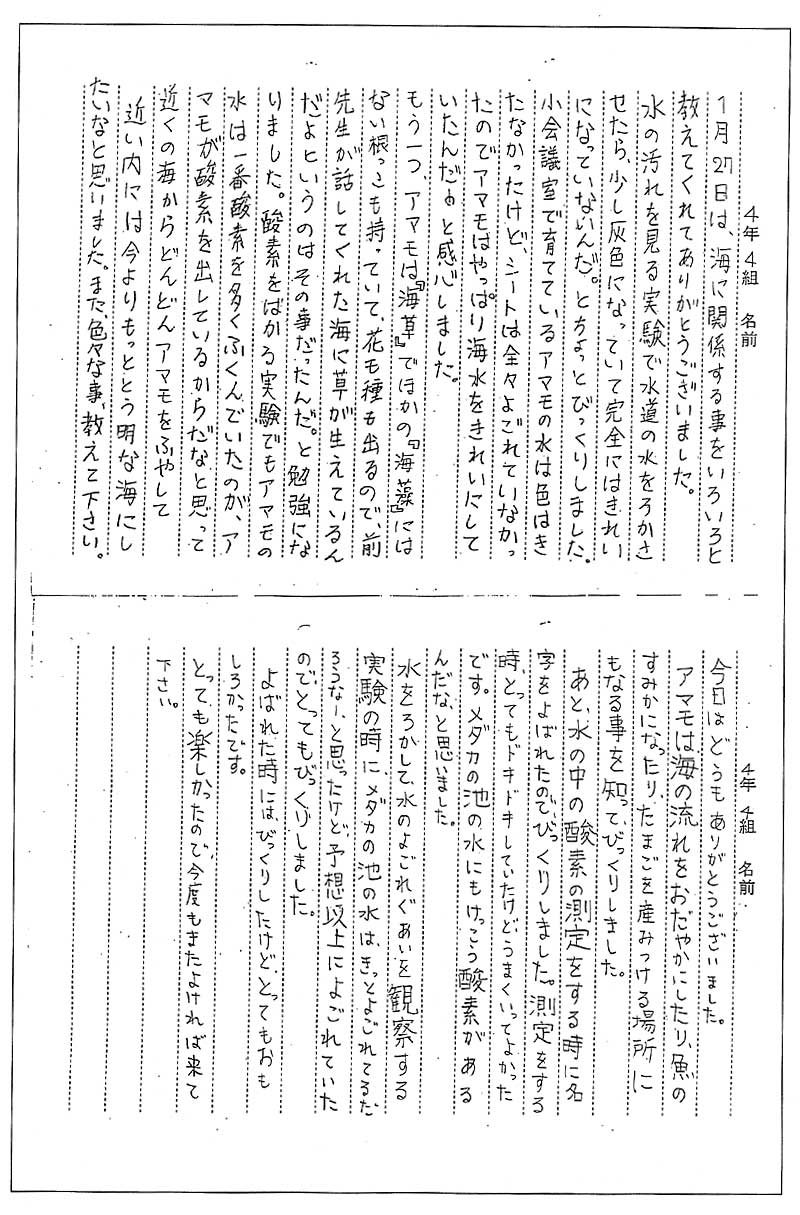 4年4組 名前
1月27日は、海に関係する事をいろいろと
教えてくれてありがとうございました。
水の汚れを見る実験で水道の水をろかさ
せたら、少し灰色になっていて完全にはきれい
になっていないんだ。とちょっとびっくりしました。
小会議室で育てているアマモの水は色はき
たなかったけど、シートは全々よごれていなかっ
たのでアマモはやっぱり海水をきれいにして
いたんだなと感心しました。
もう一つ、アマモは『海草』でほかの『海藻』には
ない根っこも持っていて、花も種も出るので、前
先生が話してくれた海に草が生えているん
だよというのはその事だったんだ。と勉強にな
りました。酸素をはかる実験でもアマモの
水は一番酸素を多くふくんでいたのが、ア
マモが酸素を出しているからだなと思って
近くの海からどんどんアマモをふやして
近い内には今よりもっととう明な海にし
たいなと思いました。また色々な事、教えて下さい。
4年 4組 名前
今日はどうもありがとうございました。
アマモは海の流れをおだやかにしたり、魚の
すみかになったり、たまごを産みつける場所に
もなる事を知って、びっくりしました。
あと、水の中の酸素の測定をする時に名
字をよばれたので、びっくりしました。測定をする
時、とってもドキドキしていたけど、うまくいってよかった
です。メダカの池の水にもけっこう酸素がある
んだな、と思いました。
水をろかして、水のよごれぐあいを観察する
実験の時に、メダカの池の水は、きっとよごれてるだ
ろうなー、と思ったけど、予想以上によごれていた
のでとってもびっくりしました。
よばれた時には、びっくりしたけど、とってもおも
しろかったです。
とっても楽しかったので、今度もまたよければ来て
下さい。